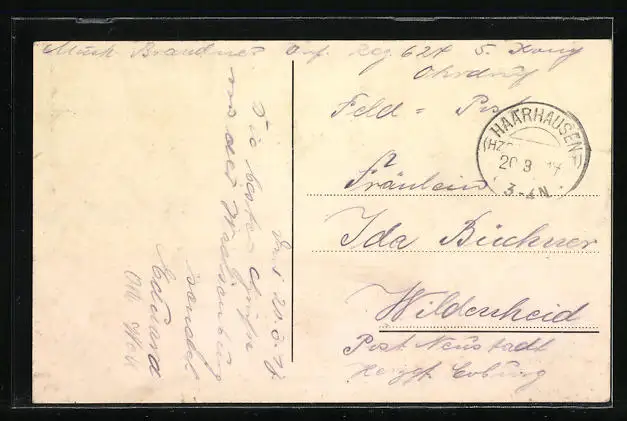 Musk Brandner Inf. Reg 624 5. Komp
Ohrdruf
Feld = Post
HAARHAUSEN
(HZ
20 3 17
3-4N
Fräulein
Ida Büchner
Wildenheid
Post Neustadt
Herzgt. Coburg
20.3.17
Die besten Grüße
von der Wachsenburg
sendet
Eduard